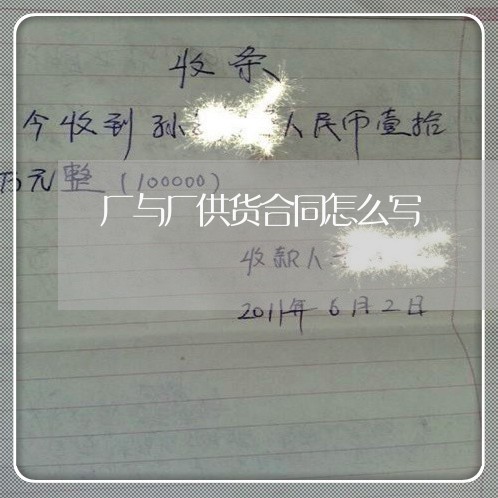 收条
今收到孙 人民币壹拾
万元整(100000)
厂与厂供货合同怎么写
收款人
2011年6月2日